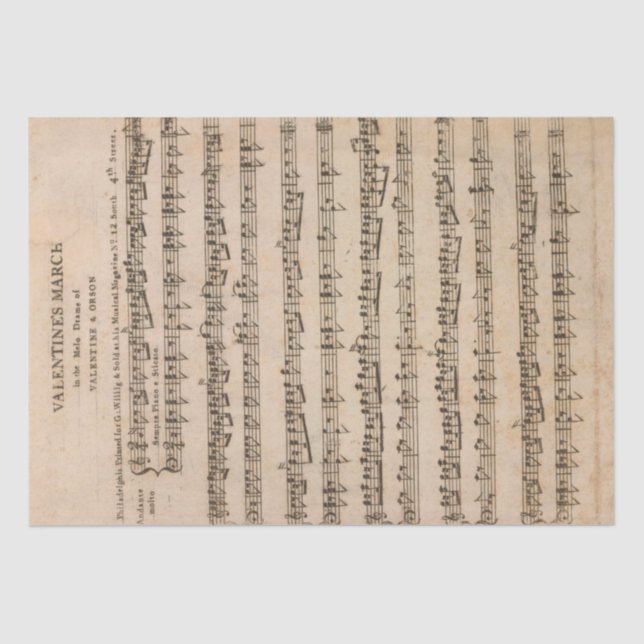 VALENTINE'S MARCH
in the Melo Drame of
VALENTINE & ORSON
Philadelphia Printed for G. Willig & Sold at his Musical Magazine No. 12 South 4th Street.
Andante
molto
Sempre Piano e Sticato.